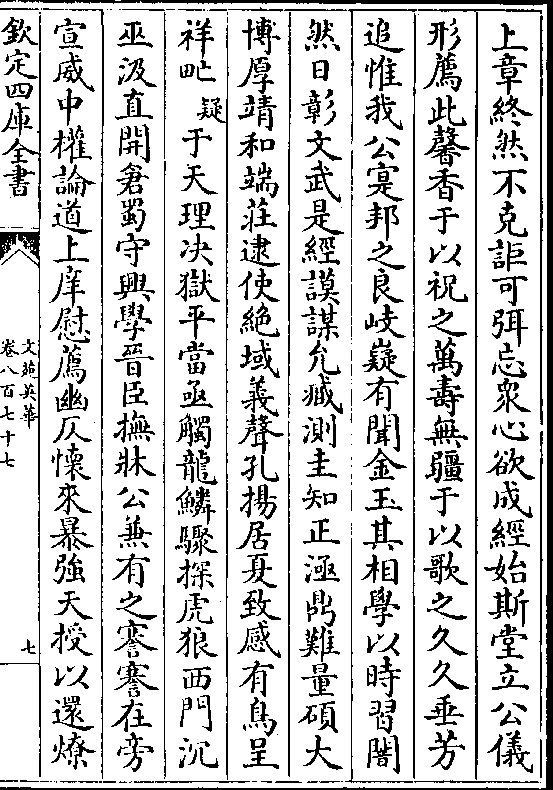 上章終然不克詎可弭忘衆心欲成經始斯堂立公儀
形薦此馨香于以祝之萬壽無疆于以歌之久久垂芳
追惟我公寔邦之良岐嶷有聞金玉其相學以時習闇
然日彰文武是經謨謀允臧測圭知正涵鼎難量碩大
博厚靖和端莊逮使絶域義聲孔揚居夏致感有鳥呈
祥㽘疑于天理决獄平當亟觸龍鱗驟探虎狼西門沉
巫汲直開倉蜀守興學晉臣撫牀公兼有之謇謇在旁
宣威中權論道上庠慰薦幽仄懷來暴強天授以還燎
欽定四庫全書
文苑英華
卷八百七十七
七